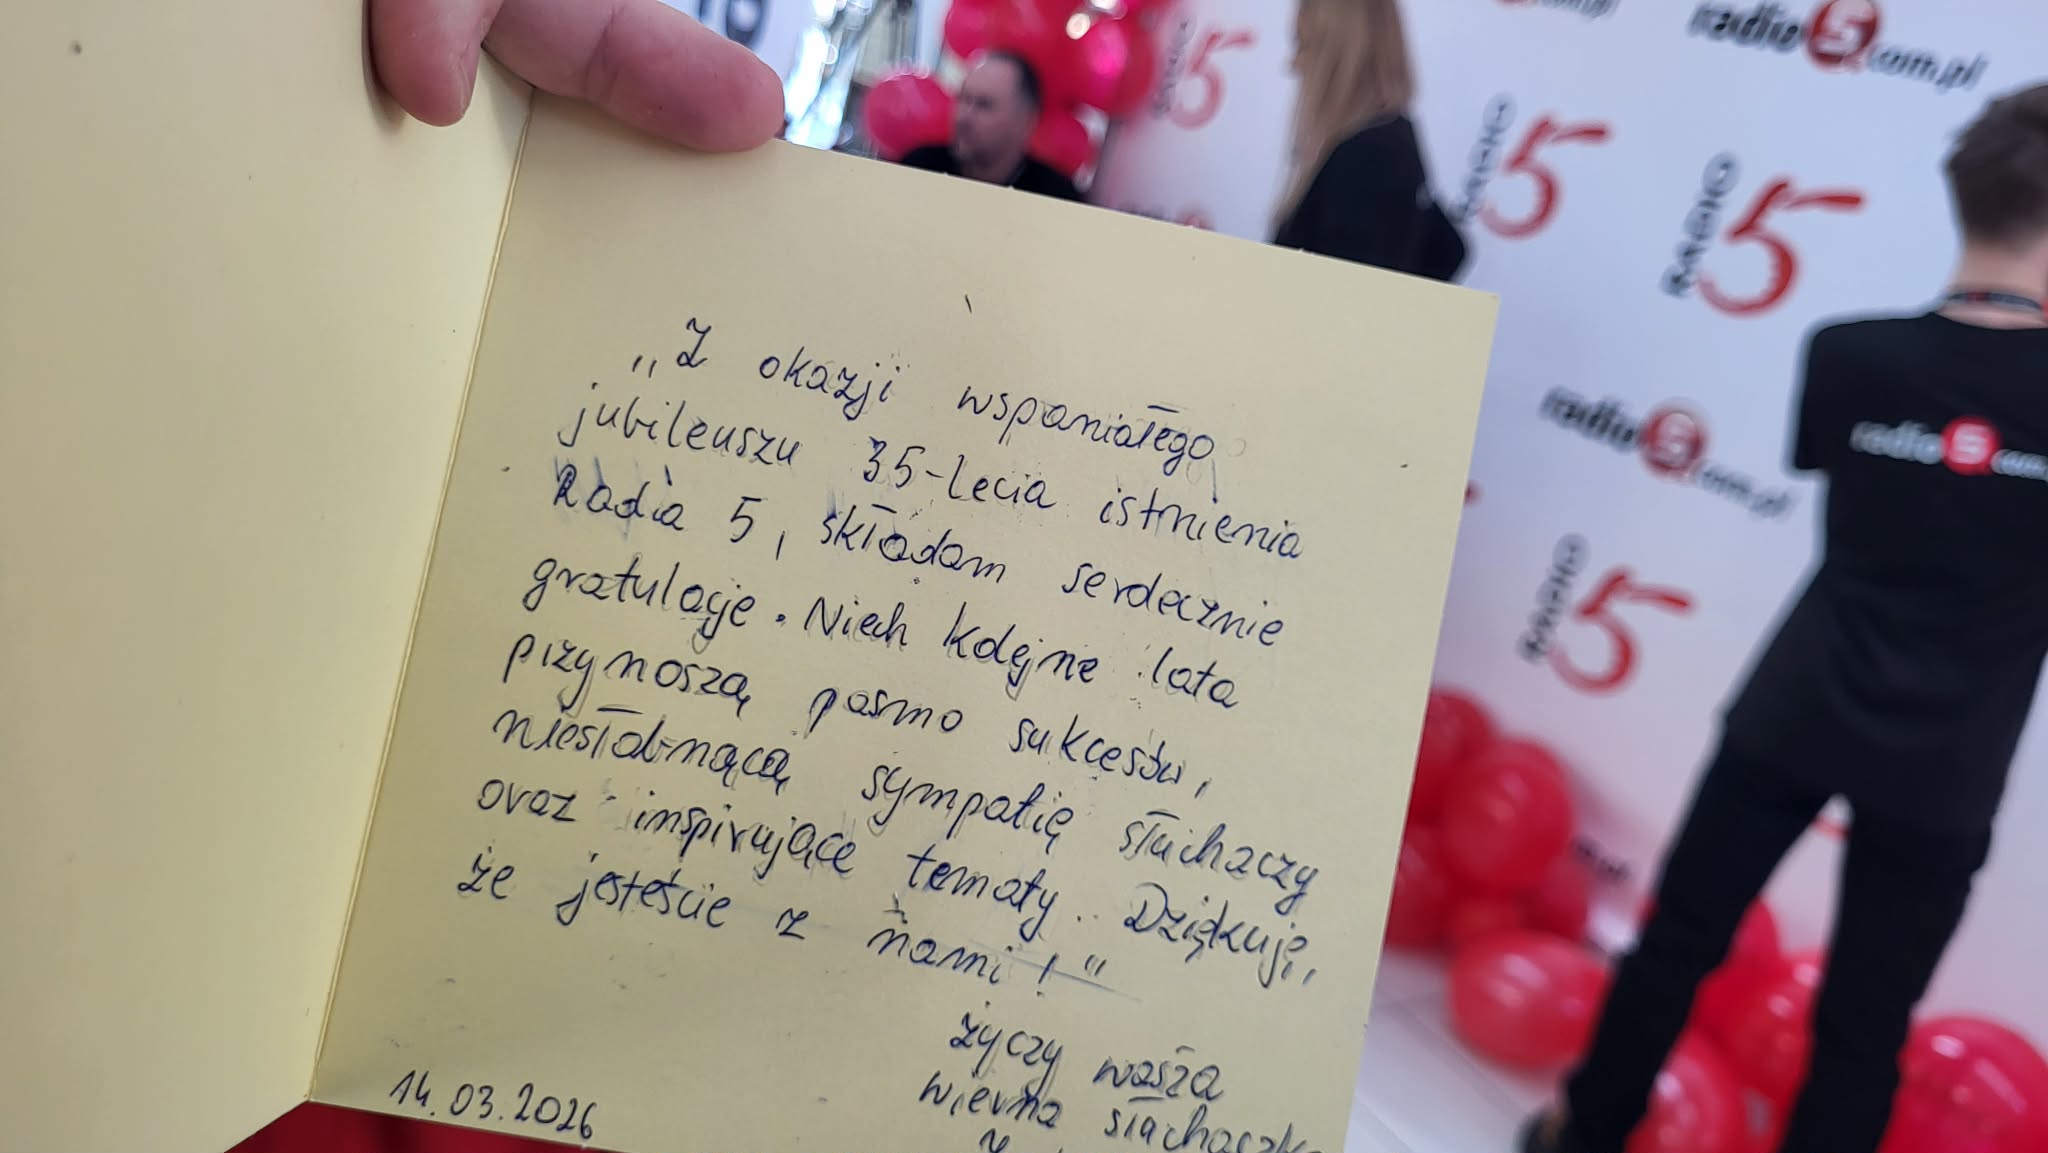 „Z okazji wspaniałego
jubileuszu 35-lecia istnienia
Radia 5, składam serdecznie
gratulacje. Niech kolejne lata
przynoszą pasmo sukcesów,
niesłabnącą sympatię słuchaczy
oraz inspirujące tematy. Dziękuję,
że jesteście z nami!"
życzy wasza
wierna słuchaczka
14.03.2026
RADIO 5
radio5.com.pl
RADIO 5
RADIO 5
radio5.com.pl
RADIO 5
radio5.com